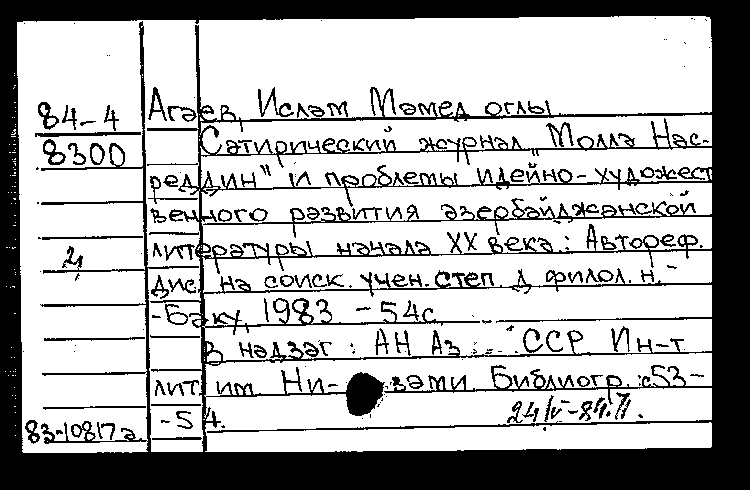 84-4 Агаев, Ислам Мамед оглы
8300 Сатирический журнал „Молла Нас-
реддин" и проблемы идейно-художест
венного развития азербайджанской
литературы начала XX века.: Автореф.
дис. на соиск. учен. степ. д. филол. н. -
-Баку, 1983 - 54с.
В надзаг: АН Аз ССР Ин-т
лит им. Ни- зами. Библиогр.: с53-
83-10817а -54. 24/IV-84.